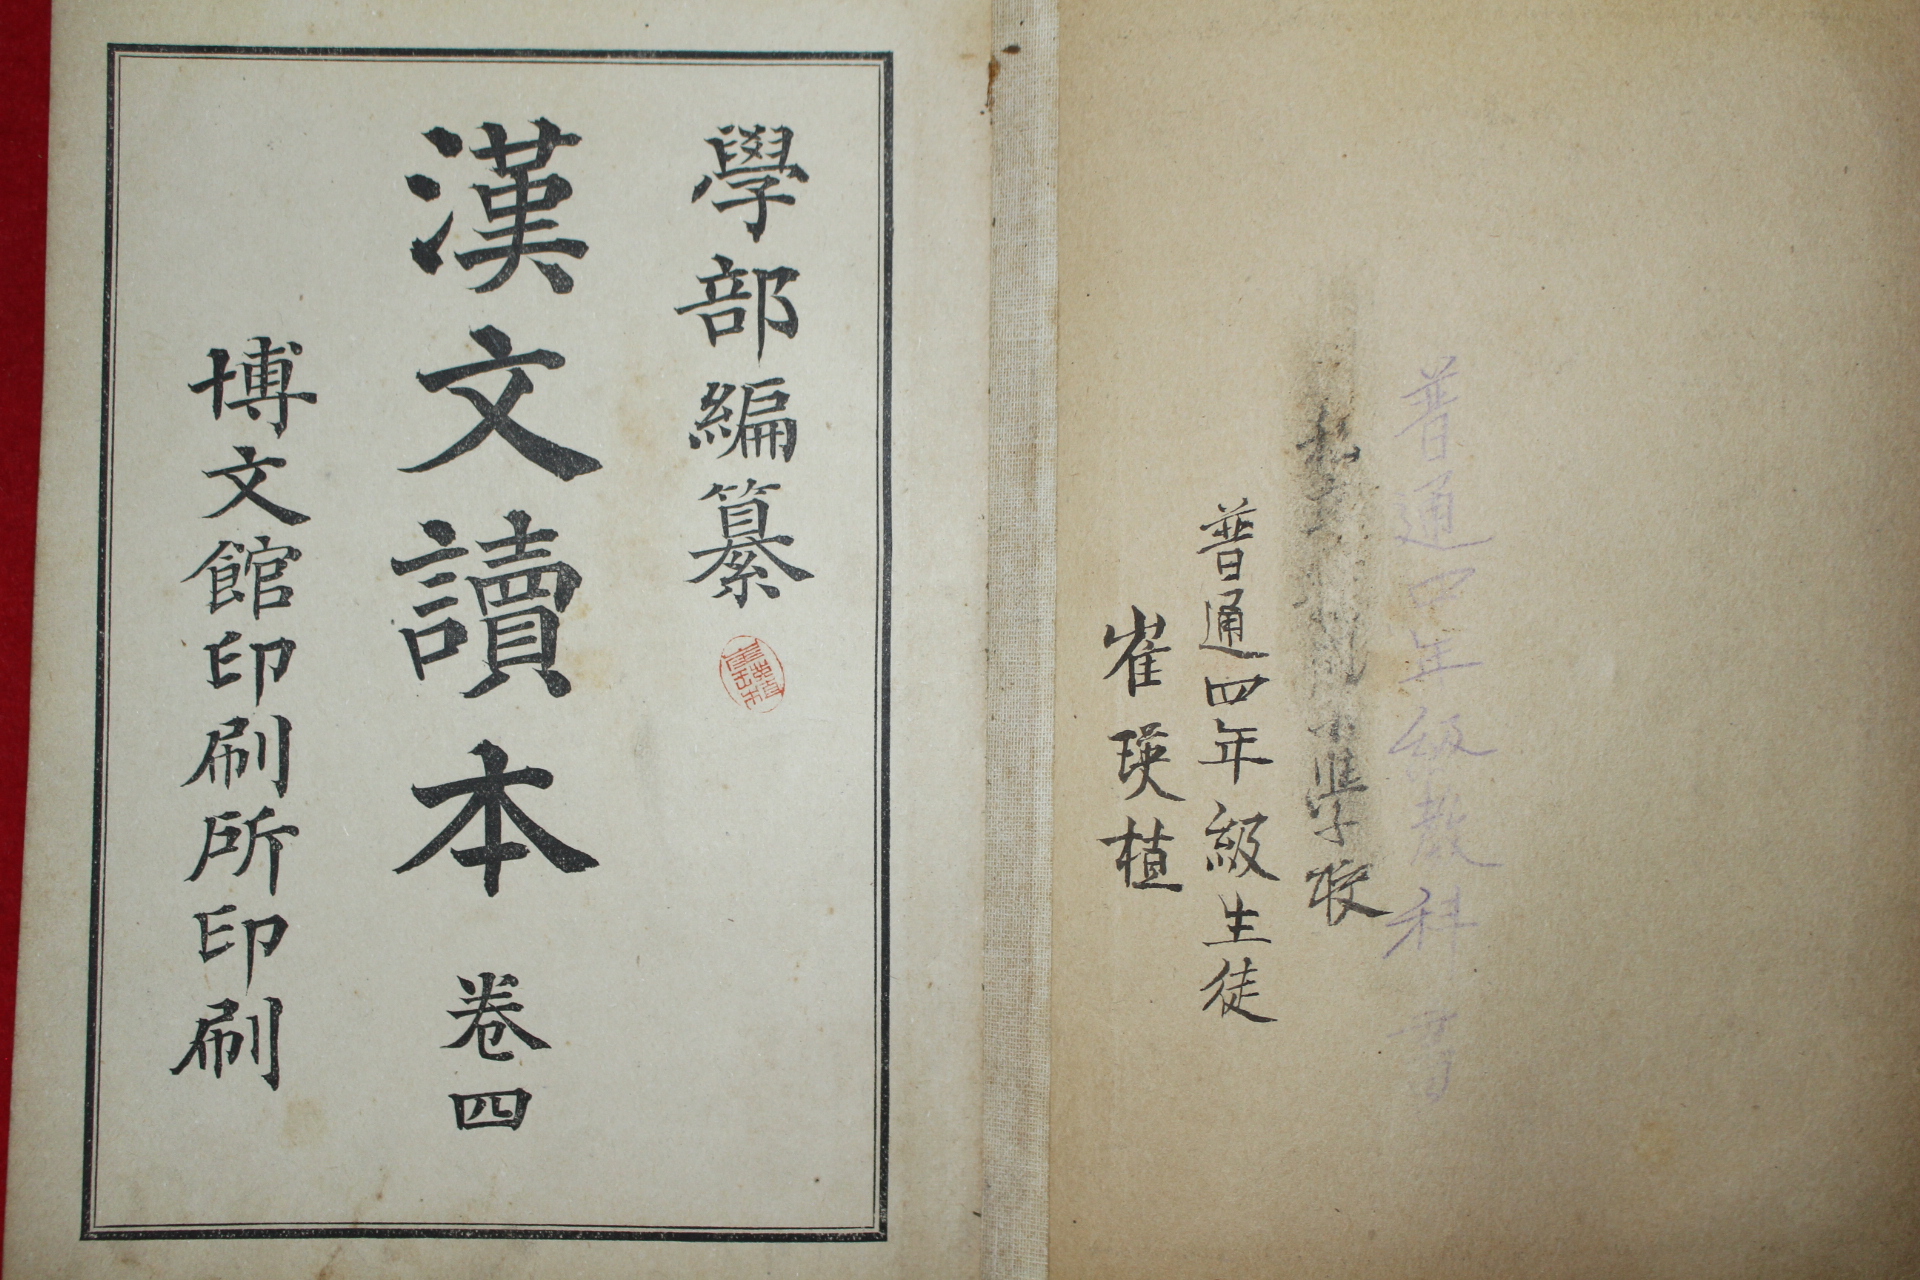 普通四年級教科書
學校
普通四年級生徒
崔瑛植
學部編纂
漢文讀本 卷四
博文館印刷所印刷